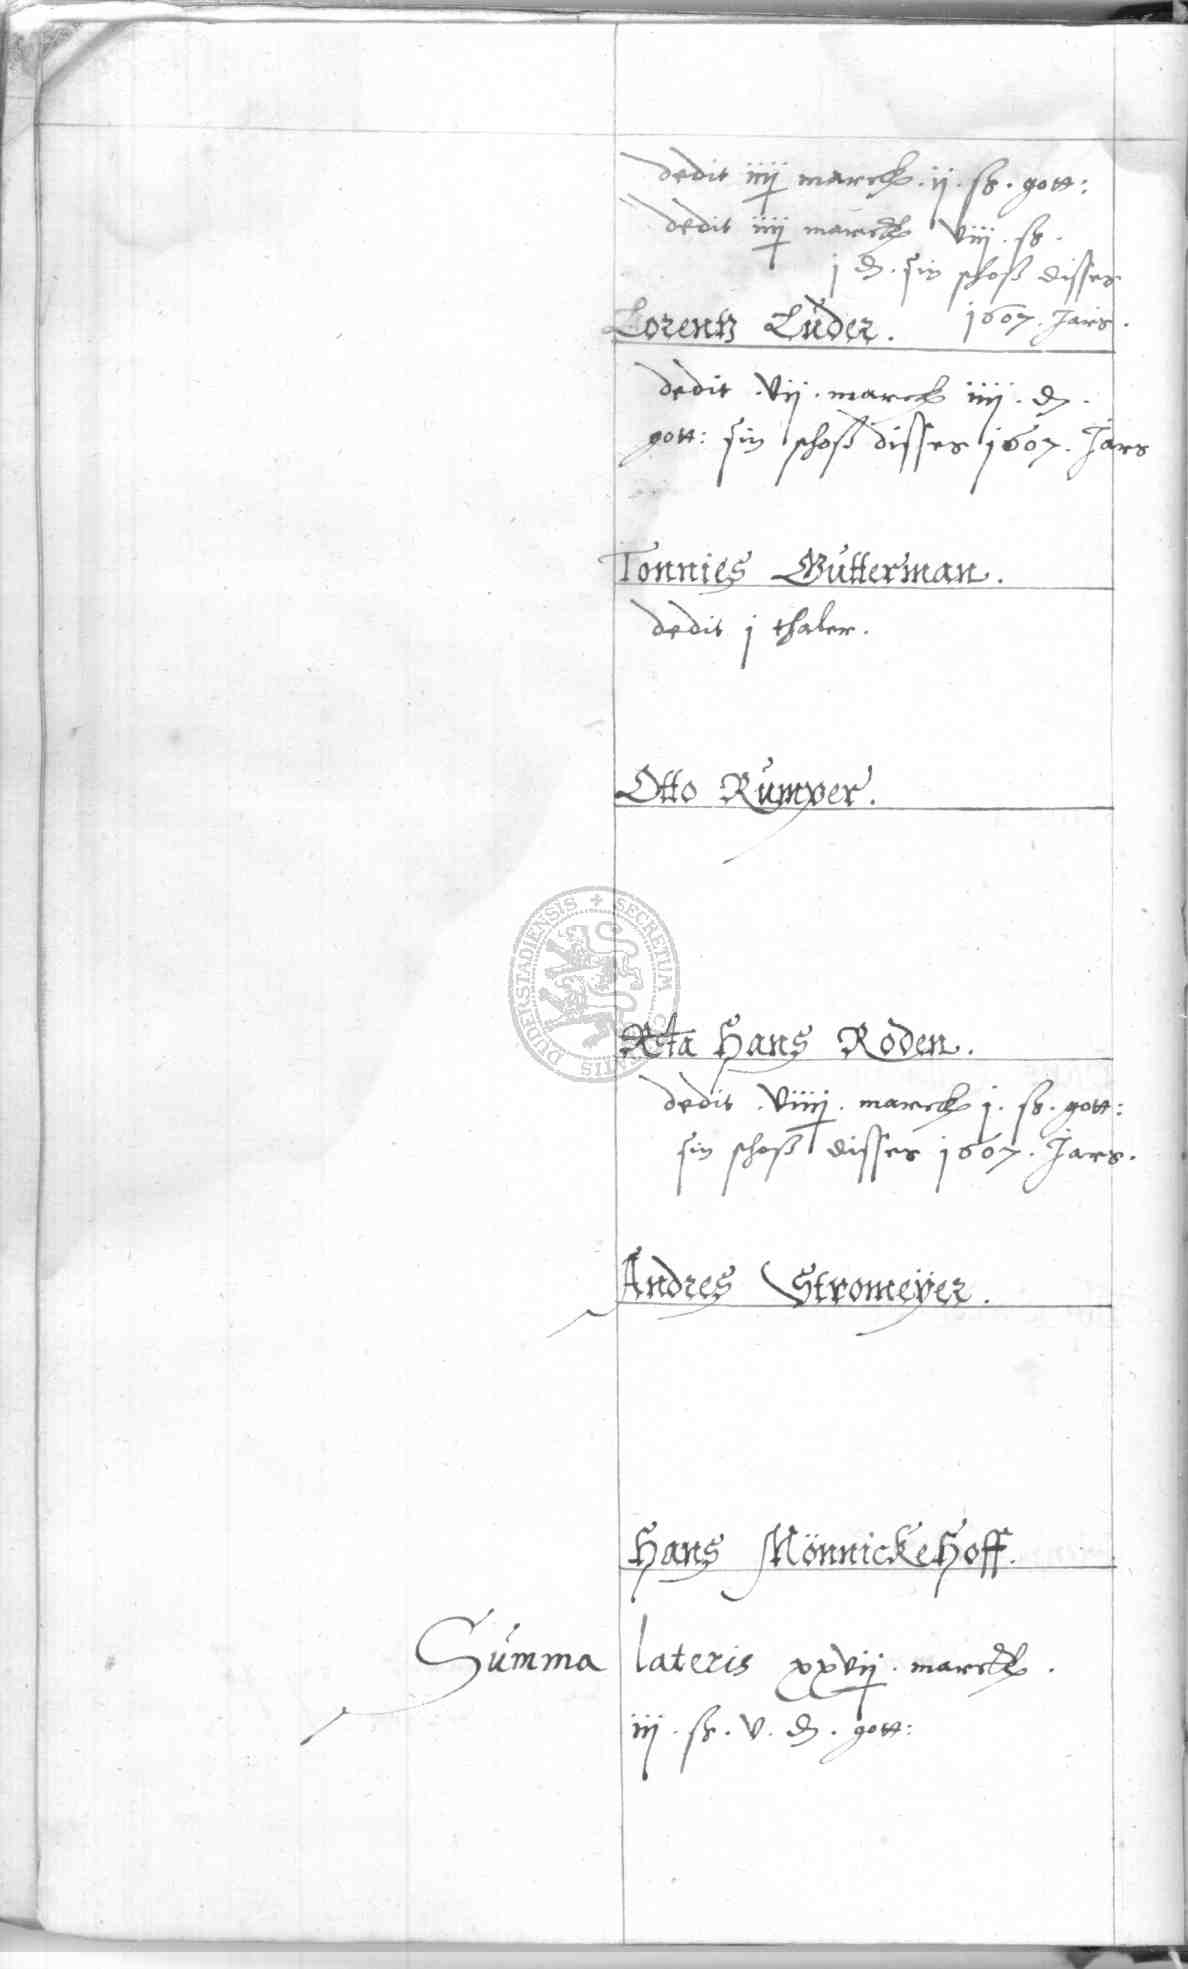 dedit iiij marck. ij. ß. gott:
dedit iiij marck viij. ß.
j d. sin schoß disses
1607. Jars.
Lorentz Lüder.
dedit .vij. marck iiij. d.
gott: sin schoß disses 1607. Jars
Tonnies Gütterman.
dedit j thaler.
Otto Rümper.
DUDERSTADIENSIS + SECRETUM CIVITATIS
Hans Roden.
dedit .viiij. marck j. ß. gott:
sin schoß disses 1607. Jars.
Andres Stromeÿer.
Hans MönnickeHoff.
Sümma lateris xxvij. marck.
iij. ß. v. d. gott: